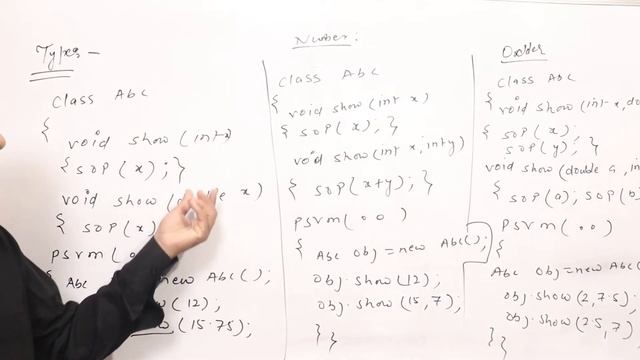 Types -
class Abc
{
void show (int x)
{ SOP (x) ; }
void show ( x)
{ SOP (x)
psvm (
{ Abc = new Abc();
(12);
(15.75);
Number:
class Abc
{ void show (int x)
{ SOP (x); }
void show (int x, int y)
{ SOP (x+y); }
psvm ( . . )
{ Abc obj = new Abc();
obj.show (12);
obj.show (15, 7);
} }
Order
class Abc
{ void show (int x, do
{ SOP (x);
SOP (y); }
void show (double a, in
{ SOP (a); SOP (b)
psvm ( . . )
{
Abc obj = new Abc(
obj.show (2, 7.5);
obj.show (2.5, 7)
} }